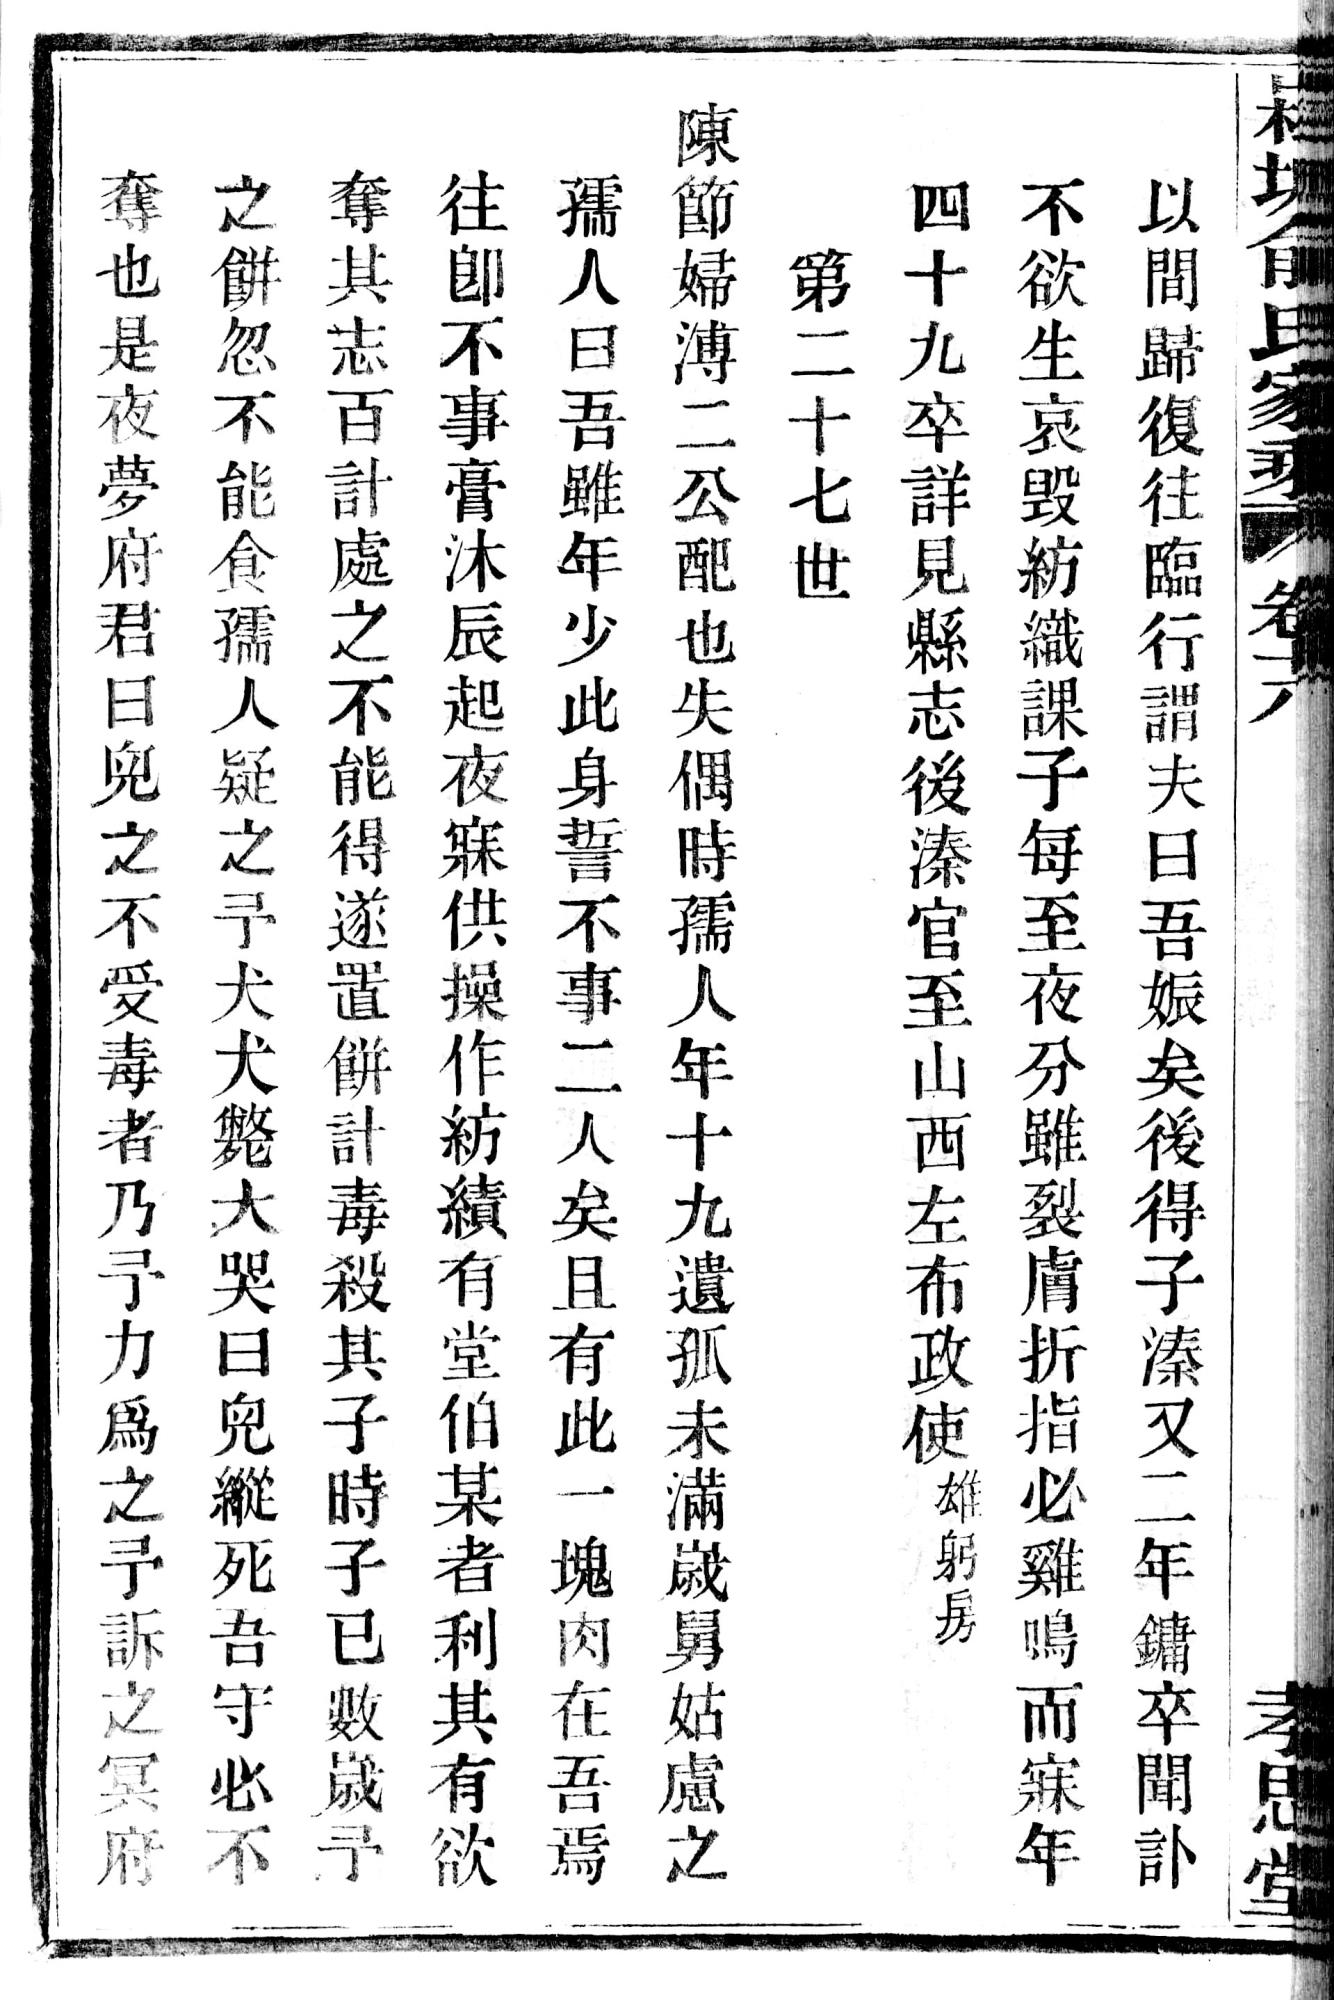 以間歸復往臨行謂夫曰吾娠矣後得子溱又二年鏞卒聞訃
不欲生哀毀紡織課子每至夜分雖裂膚折指必雞鳴而寐年
四十九卒詳見縣志後溱官至山西左布政使雄躬房
第二十七世
陳節婦溥二公配也失偶時孺人年十九遺孤未滿歲舅姑慮之
孺人曰吾雖年少此身誓不事二人矣且有此一塊肉在吾焉
往卽不事膏沐辰起夜寐供操作紡績有堂伯某者利其有欲
奪其志百計處之不能得遂置餅計毒殺其子時子已數歲予
之餅忽不能食孺人疑之予犬犬斃大哭曰兒縱死吾守必不
奪也是夜夢府君曰兒之不受毒者乃予力爲之予訴之冥府
俞氏家乘
卷六
孝思堂